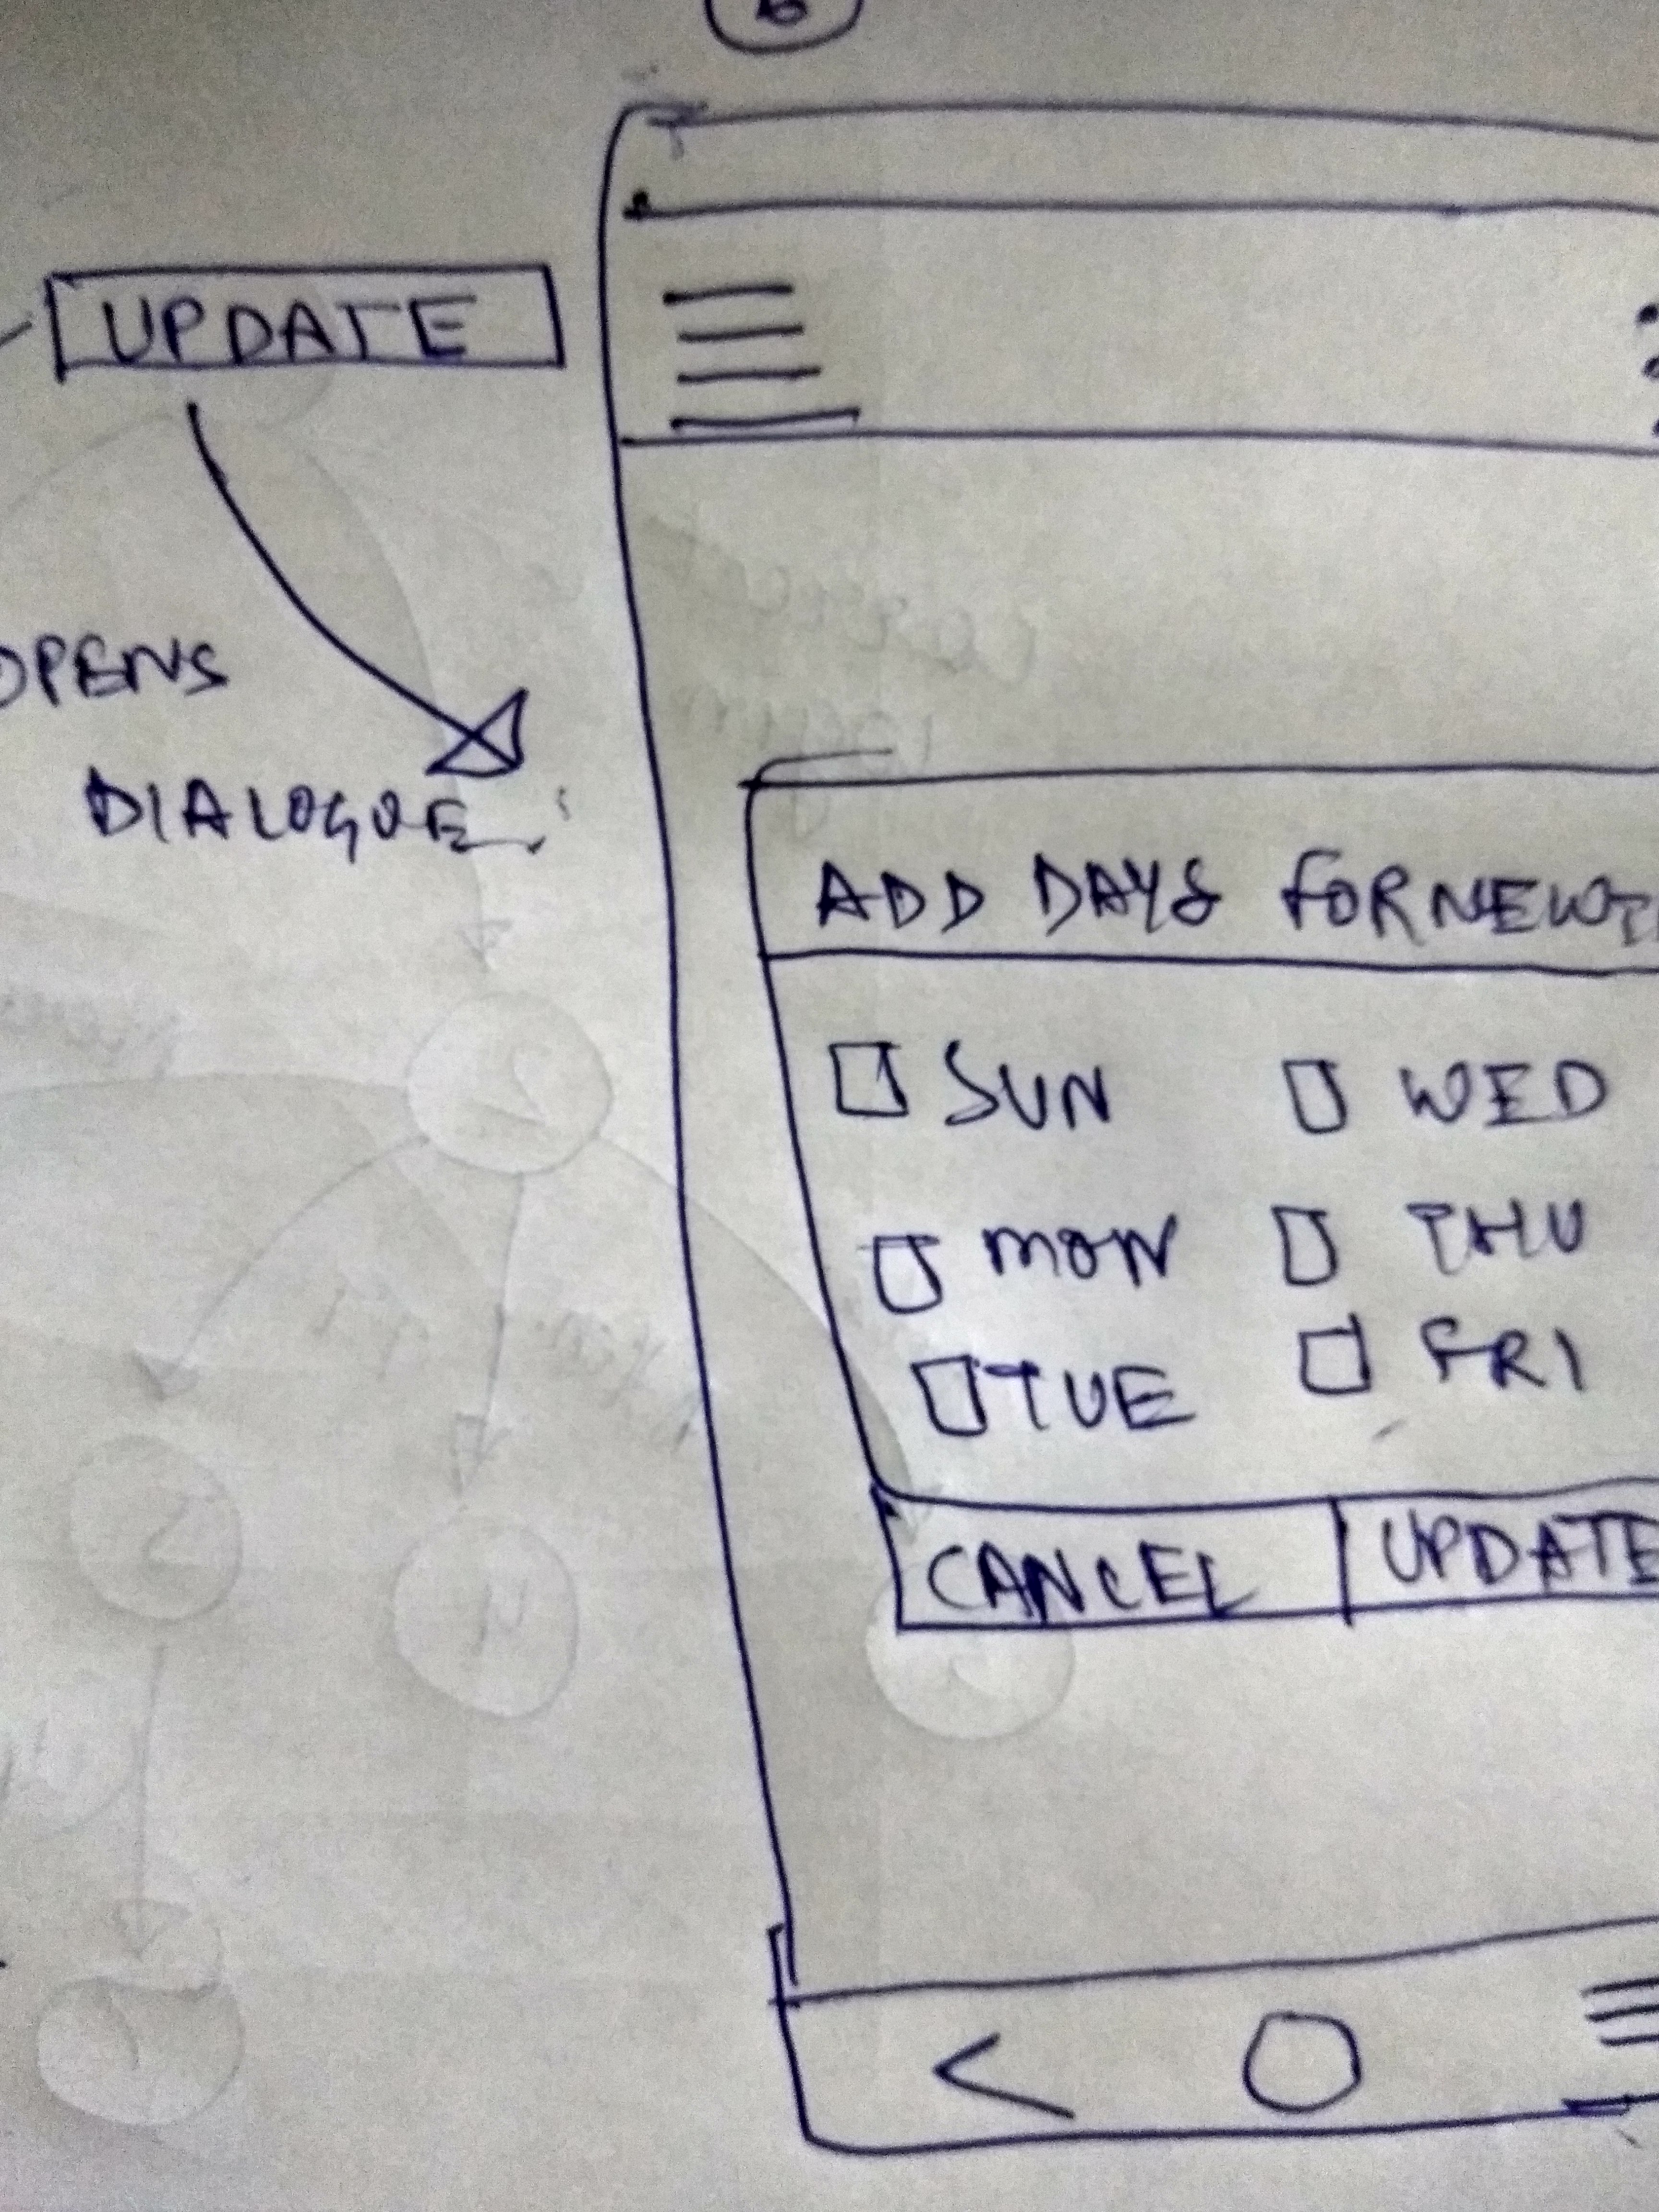 UPDATE
OPENS
DIALOGUE
ADD DAYS FOR
SUN WED
MON THU
TUE FRI
CANCEL UPDATE